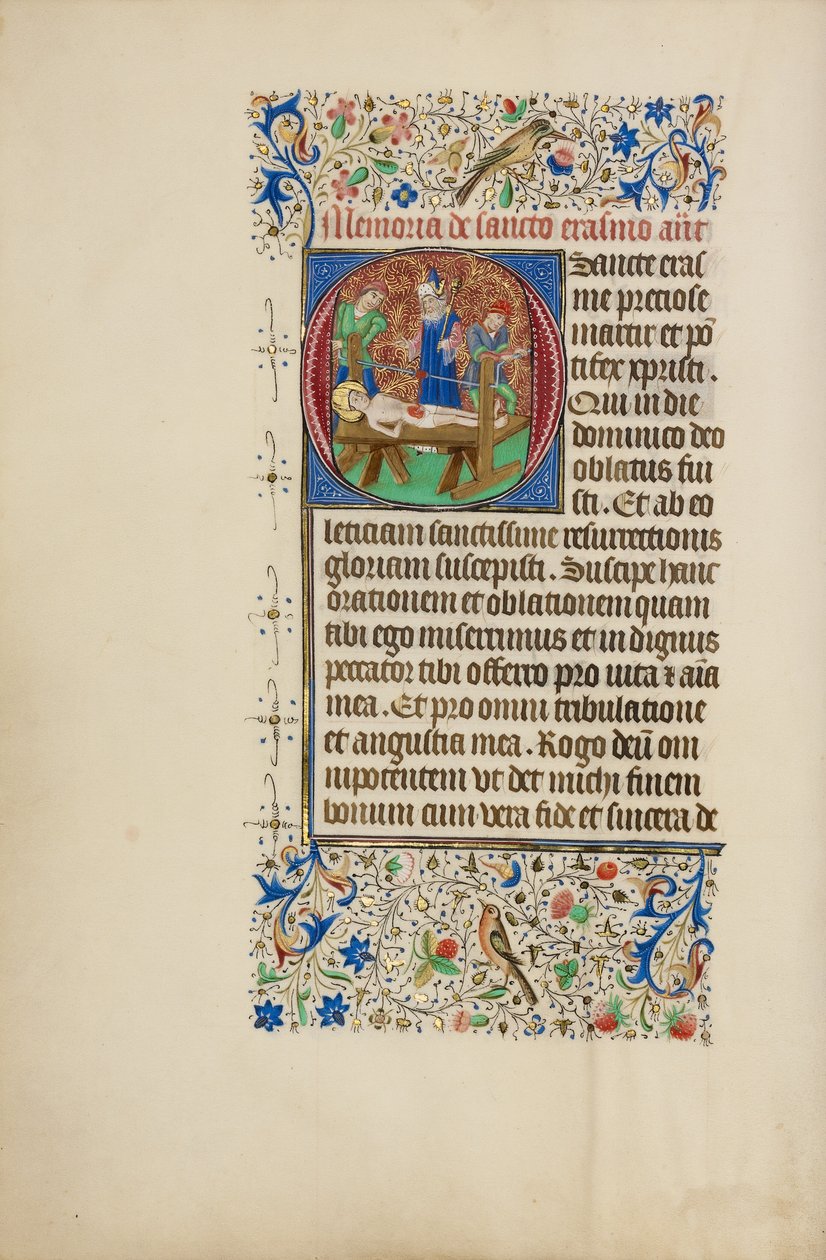 Memoria de sancto erasmo añt
Sancte eras
me preciose
martir et põ
tifex xpristi .
Qui in die
dominico deo
oblatus fui
sti . Et ab eo
leticiam sanctissime resurrectionis
gloriam suscepisti . Suscipe hanc
orationem et oblationem quam
tibi ego miserrimus et in dignus
peccator tibi offerro pro uita ⁊ aĩa
mea . Et pro omni tribulatione
et angustia mea . Rogo deũ om
nipotentem vt det michi finem
bonum cum vera fide et sincera de